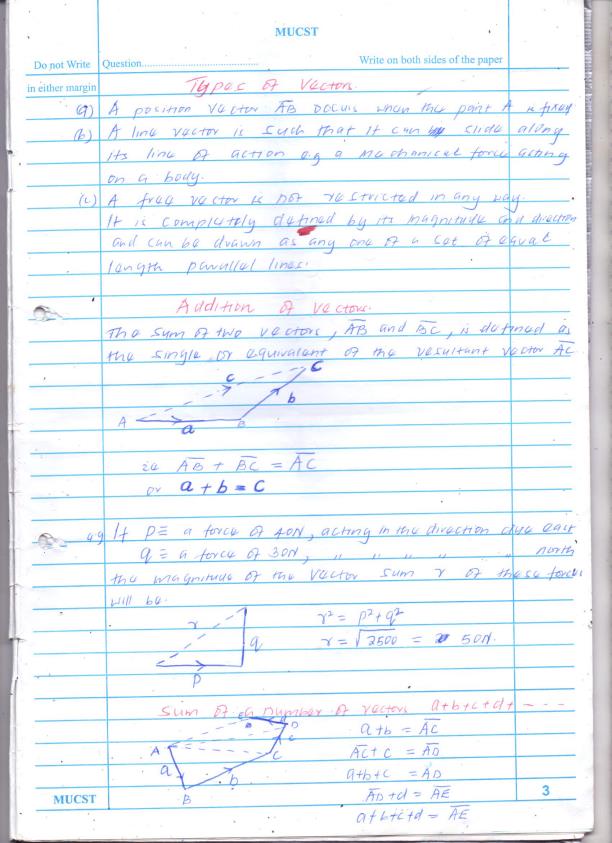 MUCST
Do not Write Question.......................................... Write on both sides of the paper
in either margin
Types of Vectors.
(a) A position vector A̅B̅ occurs when the point A is fixed
(b) A line vector is such that it can slide along
its line of action e.g a mechanical force acting
on a body.
(c) A free vector is not restricted in any way.
It is completely defined by its magnitude and direction
and can be drawn as any one of a set of equal
length parallel lines.
Addition of Vectors.
The sum of two vectors, A̅B̅ and B̅C̅, is defined as
the single or equivalent of the resultant vector A̅C̅
C
c
b
A
a
B
ie A̅B̅ + B̅C̅ = A̅C̅
or a + b = c
eg If P≡ a force of 40N, acting in the direction due east
q ≡ a force of 30N, " " " " " north
the magnitude of the vector sum r of these forces
will be.
r² = p² + q²
r = √2500 = 50N.
r
q
P
Sum of a number of vectors a+b+c+d+ - - - -
a+b = A̅C̅
A̅C̅+ c = A̅D̅
a+b+c = A̅D̅
A̅D̅ +d = A̅E̅
a+b+c+d = A̅E̅
D
A
c
C
a
b
B
MUCST 3